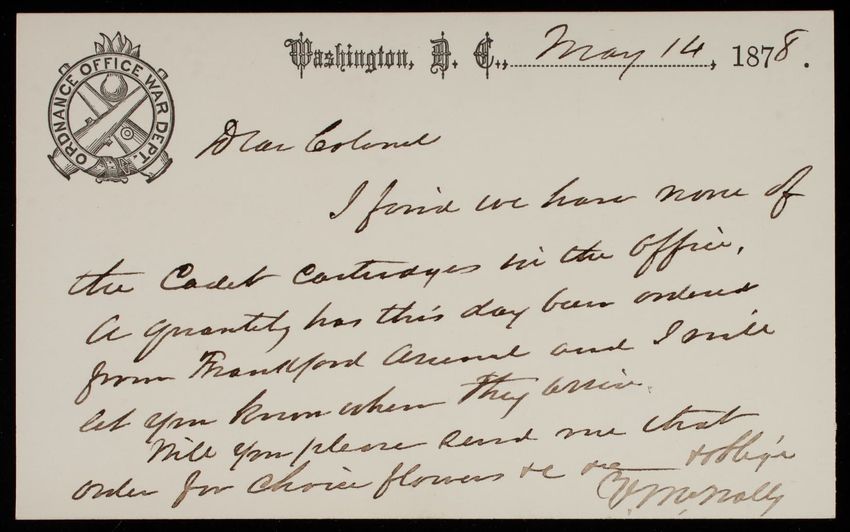 ORDNANCE OFFICE WAR DEPT.
Washington, D. C., May 14, 1878.
Dear Colonel
I find we have none of
the Cadet Cartridges in the office.
A quantity has this day been ordered
from Frankford Arsenal and I will
let you know when they arrive.
Will you please send me that
order for choice flowers &c &c & oblige
V. McNally